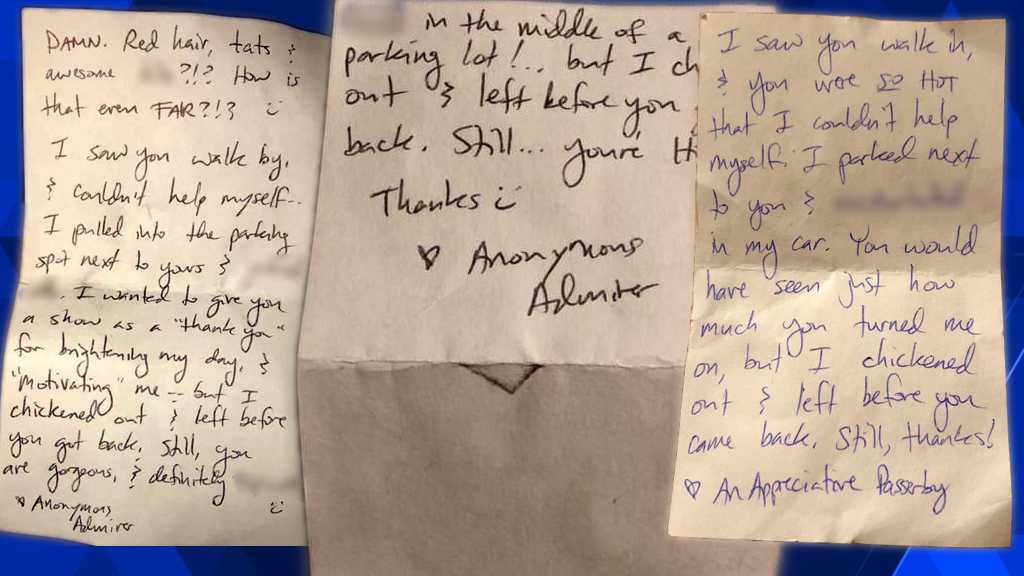 DAMN. Red hair, tats &
awesome ?!? How is
that even FAIR?!?
I saw you walk by,
& couldn't help myself--
I pulled into the parking
spot next to yours &
. I wanted to give you
a show as a "thank you"
for brightening my day, &
"motivating" me -- but I
chickened out & left before
you got back. Still, you
are gorgeous, & definitely
♥ Anonymous
Admirer
in the middle of a
parking lot!.. but I ch
out & left before you
back. Still... you're H
Thanks
♥ Anonymous
Admirer
I saw you walk in,
& you were so HOT
that I couldn't help
myself. I parked next
to you &
in my car. You would
have seen just how
much you turned me
on, but I chickened
out & left before you
came back. Still, thanks!
♥ An Appreciative Passerby